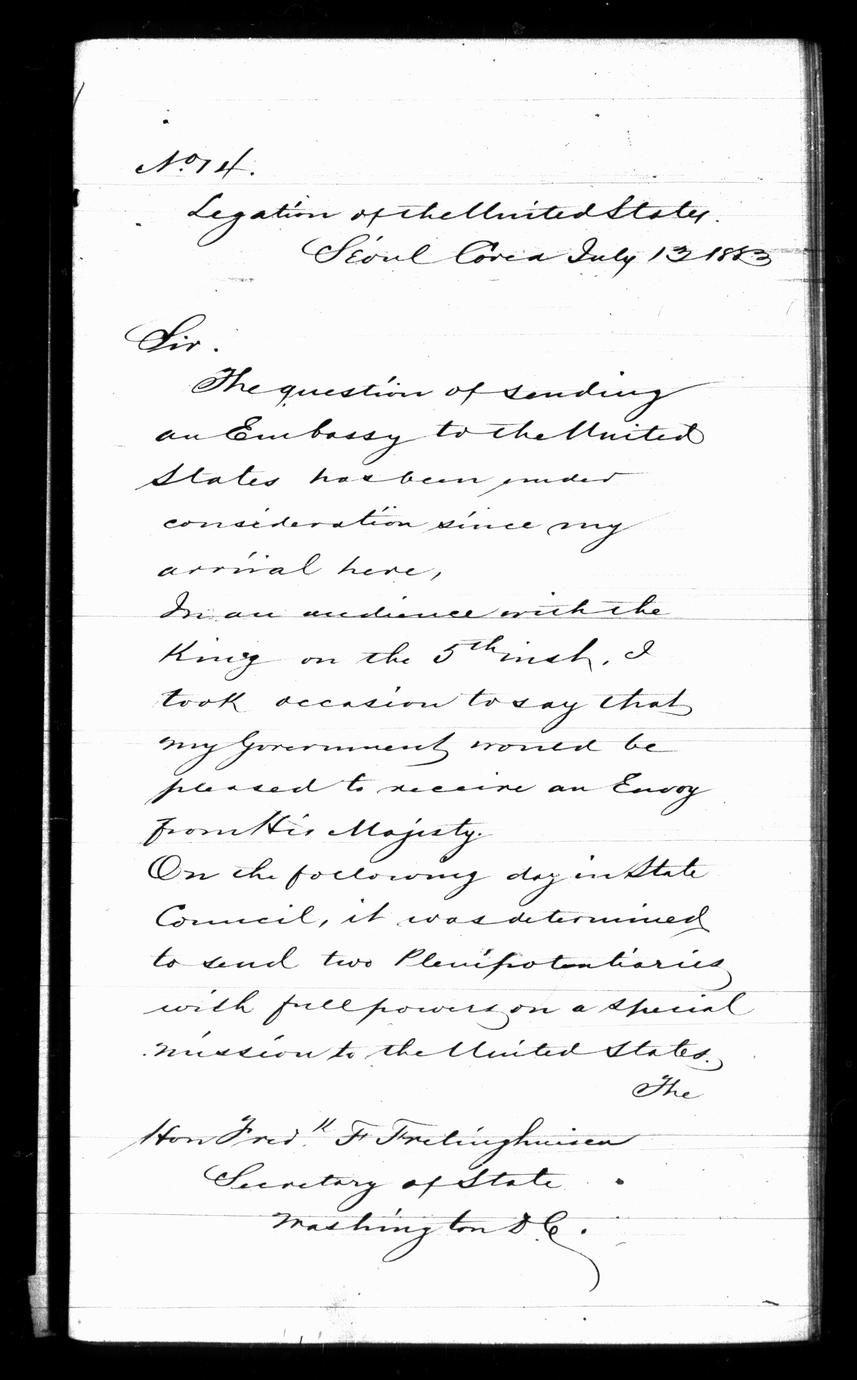 No 14.
Legation of the United States.
Séoul Corea July 13 1883
Sir.
The question of sending
an Embassy to the United
States has been under
consideration since my
arrival here,
In an audience with the
King on the 5th inst, I
took occasion to say that
my Government would be
pleased to receive an Envoy
from His Majesty.
On the following day in State
Council, it was determined
to send two Plenipotentiaries
with full powers on a special
mission to the United States.
The
Hon Fred.k F Frelinghuisen
Secretary of State
Washington D.C.